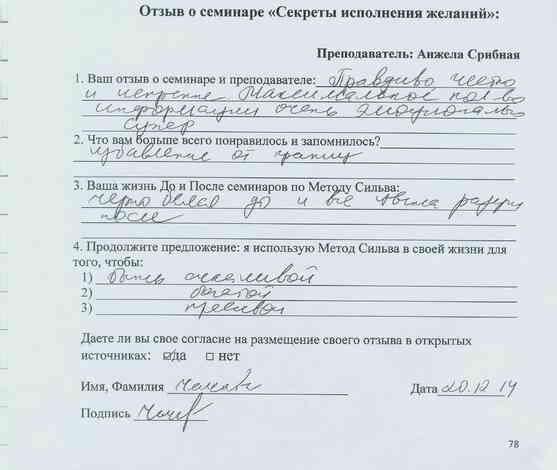 Отзыв о семинаре «Секреты исполнения желаний»:
Преподаватель: Анжела Срибная
1. Ваш отзыв о семинаре и преподавателе: Правдиво честно
и искренне Максимальное кол-во
информации очень эмоционально
супер
2. Что вам больше всего понравилось и запомнилось?
избавление от границ
3. Ваша жизнь До и После семинаров по Методу Сильва:
черно белая до и все цвета радуги
после
4. Продолжите предложение: я использую Метод Сильва в своей жизни для
того, чтобы:
1) быть счастливой
2) богатой
3) красивой
Даете ли вы свое согласие на размещение своего отзыва в открытых
источниках: ☑да □ нет
Имя, Фамилия
Дата 20.12 14
Подпись
78